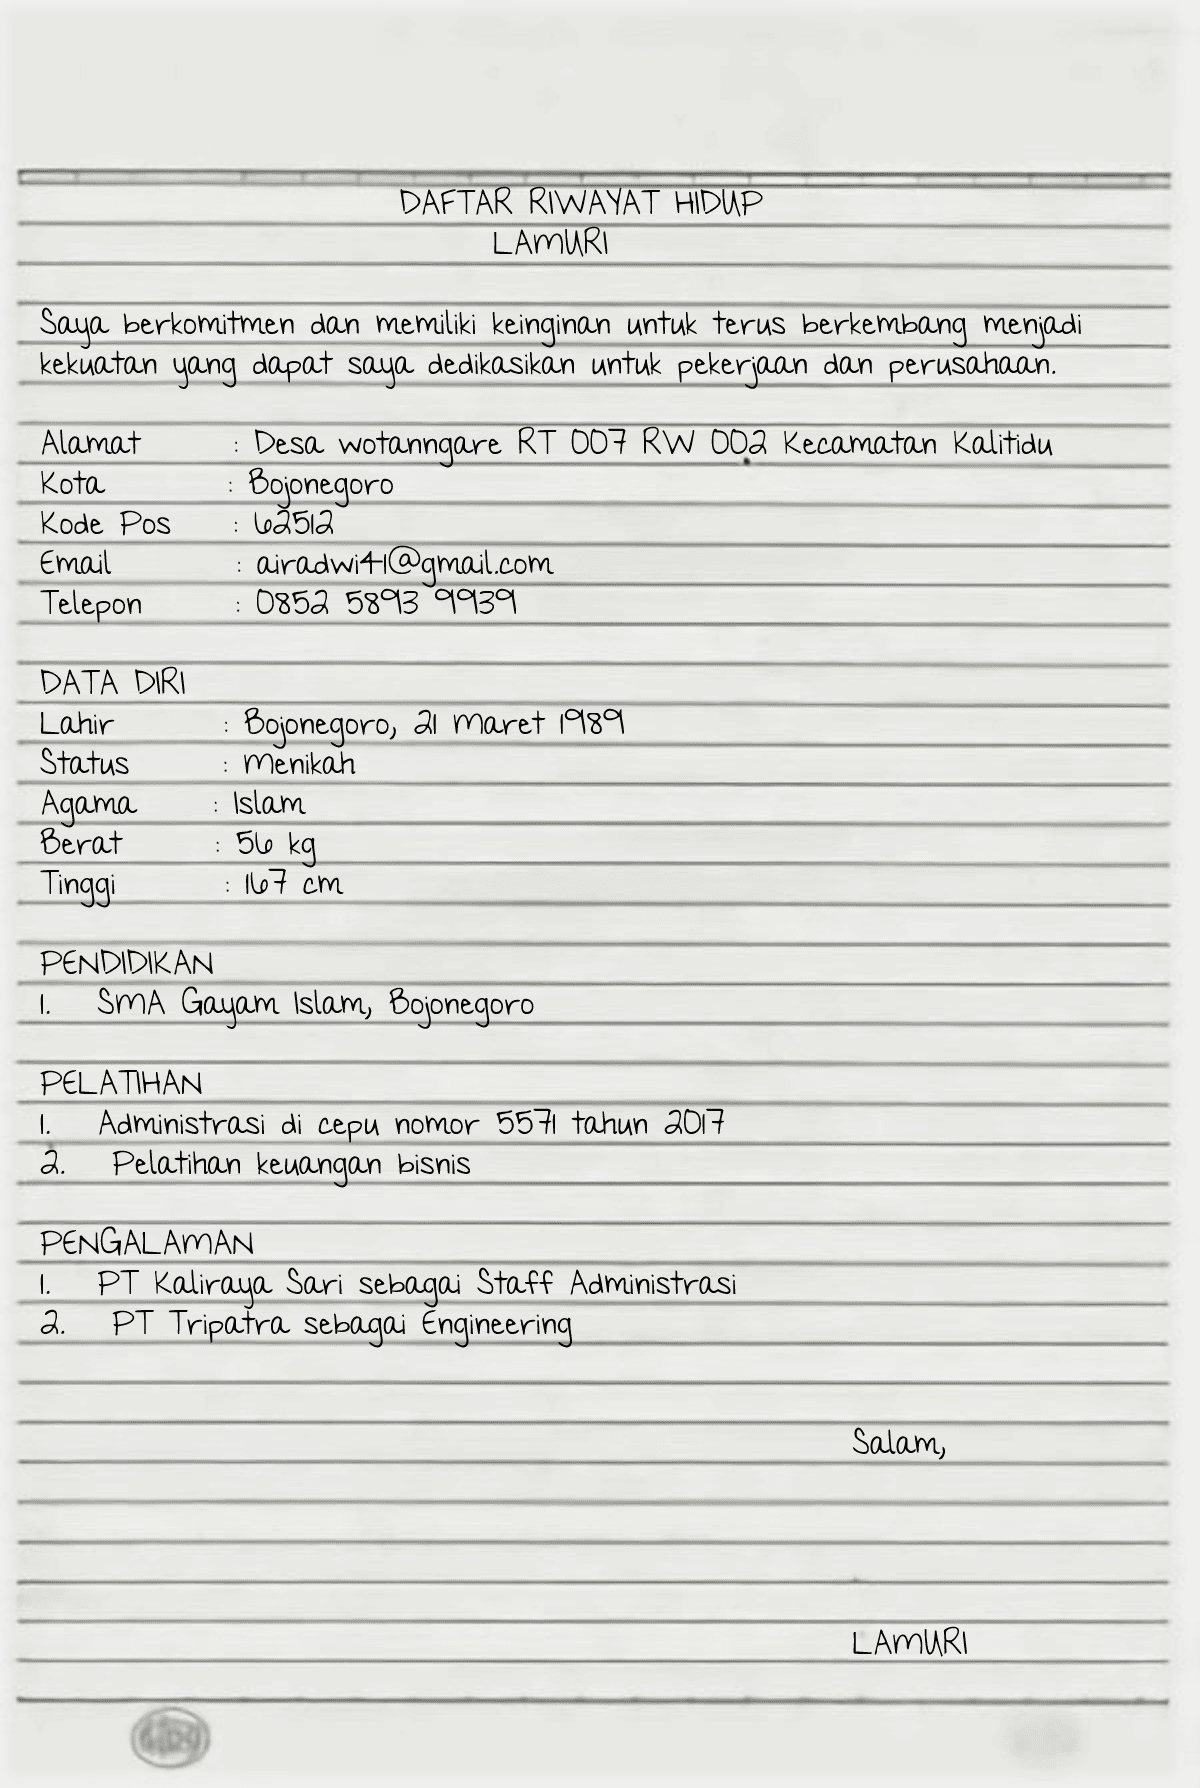 DAFTAR RIWAYAT HIDUP
LAMURI
Saya berkomitmen dan memiliki keinginan untuk terus berkembang menjadi
kekuatan yang dapat saya dedikasikan untuk pekerjaan dan perusahaan.
Alamat : Desa wotanngare RT 007 RW 002 Kecamatan Kalitidu
Kota : Bojonegoro
Kode Pos : 62512
Email : airadwi41@gmail.com
Telepon : 0852 5893 9939
DATA DIRI
Lahir : Bojonegoro, 21 Maret 1989
Status : Menikah
Agama : Islam
Berat : 56 kg
Tinggi : 167 cm
PENDIDIKAN
1. SMA Gayam Islam, Bojonegoro
PELATIHAN
1. Administrasi di cepu nomor 5571 tahun 2017
2. Pelatihan keuangan bisnis
PENGALAMAN
1. PT Kaliraya Sari sebagai Staff Administrasi
2. PT Tripatra sebagai Engineering
Salam,
LAMURI